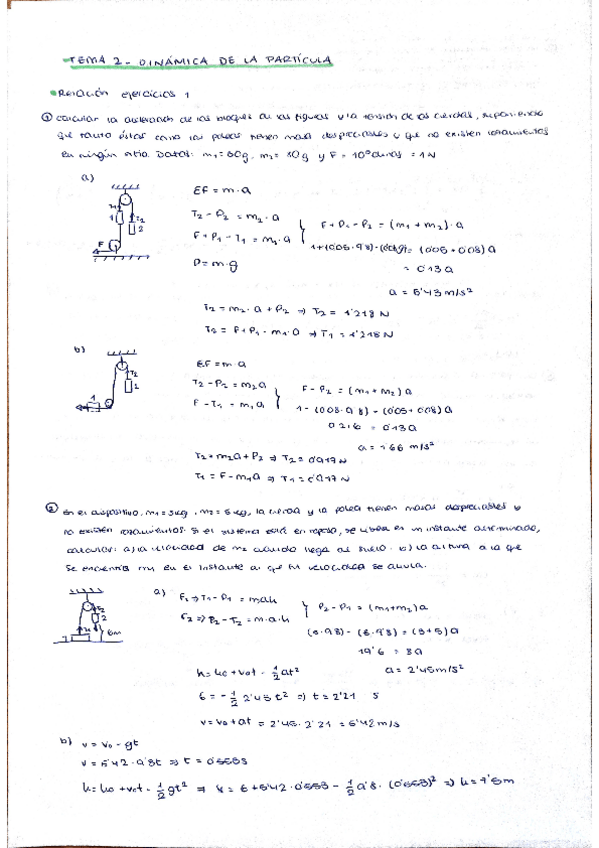 TEMA 2 - DINÁMICA DE LA PARTÍCULA
Relación ejercicios 1
① Calcular la aceleración de los bloques de las figuras y la tensión de las cuerdas, suponiendo
que tanto éstas como las poleas tienen masa despreciables y que no existen rozamientos
en ningún sitio. Datos: m₁ = 50g, m₂ = 80g y F = 10⁵ dinas = 1N
a)
EF = m·a
T₂ - P₂ = m₂·a
F + P₁ - T₁ = m₁·a
F + P₁ - P₂ = (m₁ + m₂)·a
P = m·g
= 0'13a
a = 5'43 m/s²
T₂ = m₂·a + P₂ ⇒ T₂ = 1'218 N
T₂ = F + P₁ - m₁·a ⇒ T₁ = 1'218 N
b)
EF = m·a
T₂ - P₂ = m₂a
F - T₁ = m₁a
F - P₂ = (m₁ + m₂)a
1 - (0'08·9'8) = (0'05 + 0'08)a
0'216 = 0'13a
a = 1'66 m/s²
T₂ = m₂a + P₂ ⇒ T₂ = 0'917 N
T₁ = F - m₁a ⇒ T₁ = 0'917 N
② En el dispositivo, m₁ = 3kg, m₂ = 5kg, la cuerda y la polea tienen masas despreciables y
no existen rozamientos. Si el sistema está en reposo, se libera en un instante determinado,
calcular: a) la velocidad de m₂ cuando llega al suelo. b) la altura a la que
se encuentra m₁ en el instante en que su velocidad se anula.
a)
T₁ - P₁ = m·a
P₂ - T₂ = m·a
P₂ - P₁ = (m₁ + m₂)a
19'6 = 8a
a = 2'45 m/s²
h = h₀ + v₀t - ½at²
6 = -½ 2'45 t² ⇒ t = 2'21 s
v = v₀ + at = 2'45·2'21 = 5'42 m/s
b) v = v₀ - gt
v = 5'42 - 9'8t ⇒ t = 0'553s
h = h₀ + v₀t - ½gt² ⇒ h = 6 + 5'42·0'553 - ½ 9'8·(0'553)² ⇒ h = 7'5m